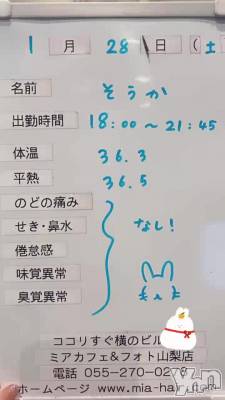 1 月 28 日 (土
名前 そうか
出勤時間 18:00 ~ 21:45
体温 36.3
平熱 36.5
のどの痛み
せき・鼻水 なし!
倦怠感
味覚異常
臭覚異常
ココリすぐ横のビル
ミアカフェ&フォト山梨店
電話 055-270-02
ホームページ www.mia-hair